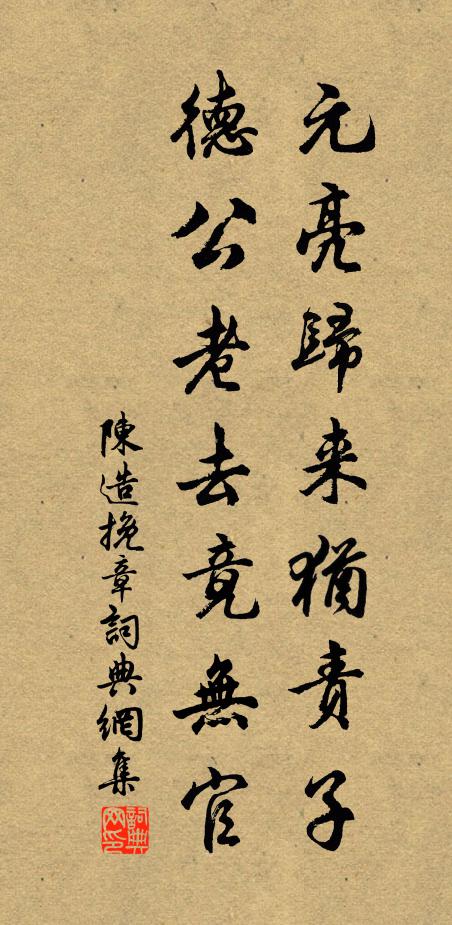 元亮歸来猶責子
德公老去竟無官
陳造挽章詞典網集
詞典网印